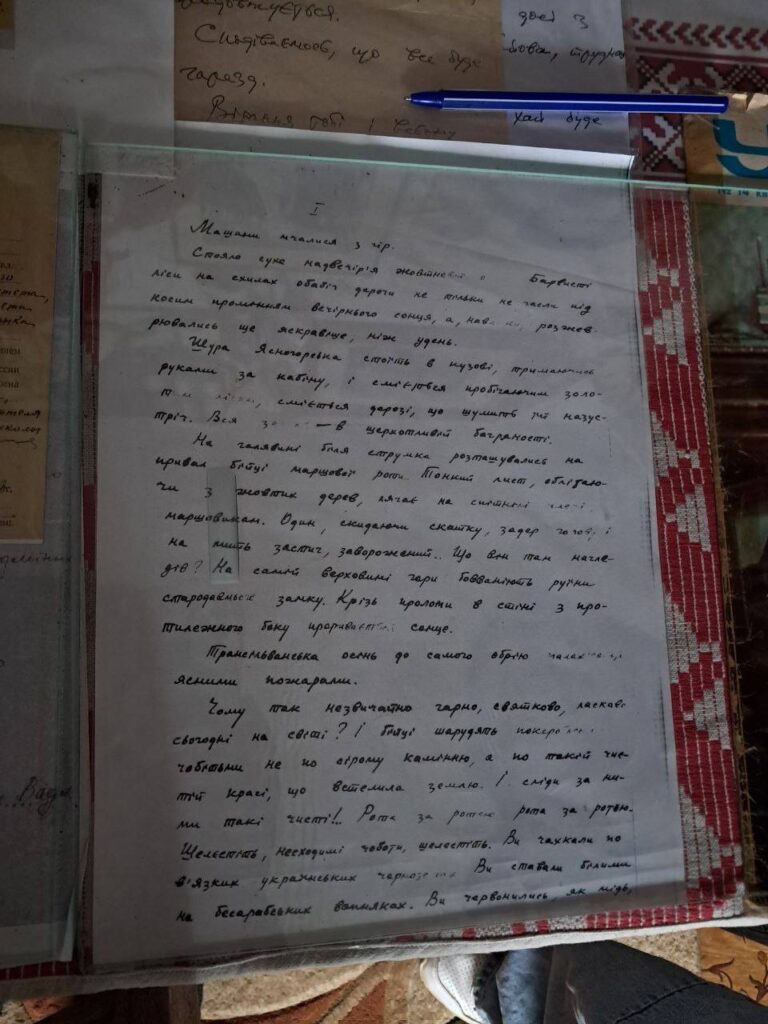 Сподіваємось, що все буде
гаразд.
Вітання тобі і
хай буде
№ 14
I
Машини мчалися з гір.
Стояло сухе надвечір'я Барвисті
ліси на схилах обабіч дороги не тільки не гасли під
косим промінням вечірнього сонця, а, розжев-
рювались ще яскравіше, ніж удень.
Шура Ясногорська стоїть в кузові, тримаючись
руками за кабіну, і сміється пробігаючим золо-
сміється дорозі, що шумить їй назус-
тріч. Вся – в щерхотливій багряності.
На галявині біля струмка розташувались на
привал бійці маршової роти. Тонкий лист, облітаю-
чи з жовтих дерев, лягає на
маршовикам. Один, скидаючи скатку, задер голову і
на мить застиг, заворожений.. Що він там нагле-
дів? На самій верховині гори бовваніють руїни
стародавнього замку. Крізь проломи в стіні з про-
тилежного боку сонце.
Трансільванська осінь до самого обрію
ясними пожарами.
Чому так незвичайно гарно, святково, ласкаво
сьогодні на світі? І бійці шарудять
чобітьми не по сірому камінню, а по такій чис-
тій красі, що встелила землю. І сліди за ни-
ми такі чисті!.. Рота за ротою рота за ротою.
Шелестіть, несходимі чоботи, шелестіть. Ви чахкали по
в'язких українських Ви ставали білими
на бесарабських вапняках. Ви червонились, як мідь,